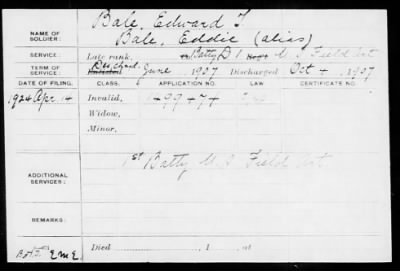 Bale, Edward T
NAME OF SOLDIER: Bale, Eddie (alias)
SERVICE: Late rank, Batty D 1 Reg't U S Field Art
TERM OF SERVICE: Enlisted June, 1907 Discharged Oct 4, 1907
DATE OF FILING. CLASS. APPLICATION NO. LAW. CERTIFICATE NO.
1924 Apr. 14 Invalid, 1499474
Widow,
Minor,
ADDITIONAL SERVICES: 1st Batty U.S Field Art
REMARKS:
Died , 1 , at
EME